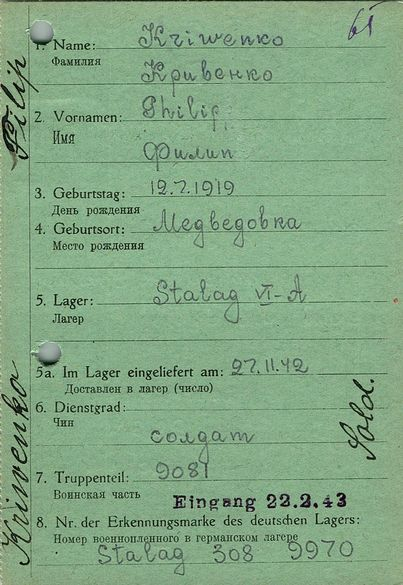 61
1. Name: Kriwenko
Фамилия
Кривенко
2. Vornamen: Philipp
Имя
Филип
3. Geburtstag: 12.7.1919
День рождения
4. Geburtsort: Медведовка
Место рождения
5. Lager: Stalag VI-A
Лагерь
5a. Im Lager eingeliefert am: 27.11.42
Доставлен в лагерь (число)
6. Dienstgrad:
Чин
солдат
7. Truppenteil: 9081
Воинская часть
Eingang 22.2.43
8. Nr. der Erkennungsmarke des deutschen Lagers:
Номер военнопленного в германском лагере
Stalag 308 9970
Kriwenko Filip
Sold.